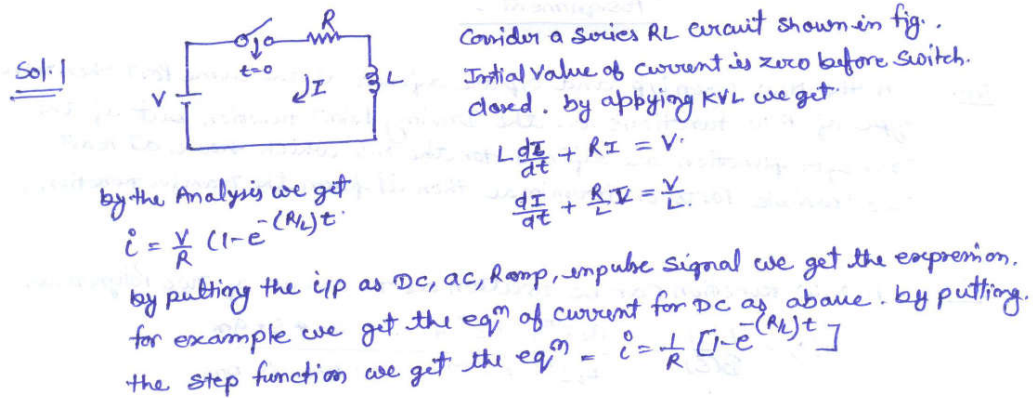 Sol.1
V
t=0
R
L
I
Consider a series RL circuit shown in fig..
Initial value of current is zero before switch.
closed. by applying KVL we get
L dI/dt + RI = V.
dI/dt + R/L I = V/L.
by the Analysis we get
i = V/R (1-e^-(R/L)t.
by putting the i/p as DC, ac, Ramp, impulse signal we get the expression.
for example we get the eqn of current for DC as above. by putting.
the step function we get the eqn = i = 1/R [1-e^-(R/L)t]